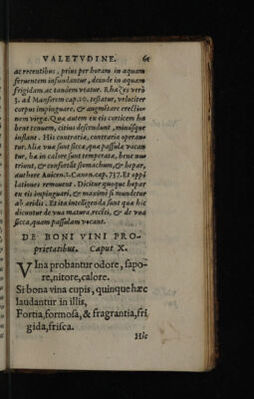 VALETVDINE. 61
ac recentibus, prius per horam in aquam
feruentem infundantur, deinde in aquam
frigidam ac tandem vtatur. Rhazes verò
3. ad Mansorem cap. 20. testatur, velociter
corpus impinguare, & augmentare erectio-
nem virgæ. Quæ autem eu eis corticem ha
bent tenuem, citius descendunt, minusque
inflant. His contraria, contraria operan-
tur. Aliæ vuæ sunt siccæ, quæ passulæ vocan
tur, hæ in calore sunt temperatæ, benè nu-
triunt, & confortāt stomachum, & hepar,
authore Auicen. 2. Canon. cap. 737. Et oppi
lationes remouent. Dicitur quoque hepar
eu eis impinguari, & maximè si mundetur
ab aridis. Et ita intelligenda sunt quæ hîc
dicuntur de vua matura, recēti, & de vua
sicca, quam passulam vocant.
DE BONI VINI PRO-
prietatibus. Caput X.
VIna probantur odore, sapo-
re, nitore, calore.
Si bona vina cupis, quinque hæc
laudantur in illis,
Fortia, formosa, & fragrantia, fri
gida, frisca.
Hîc